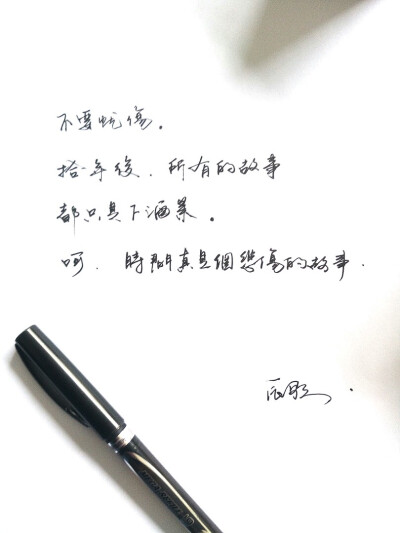 不要忧傷。
拾年後.所有的故事
都只是下酒菜。
呵.時間真是個悲傷的故事.